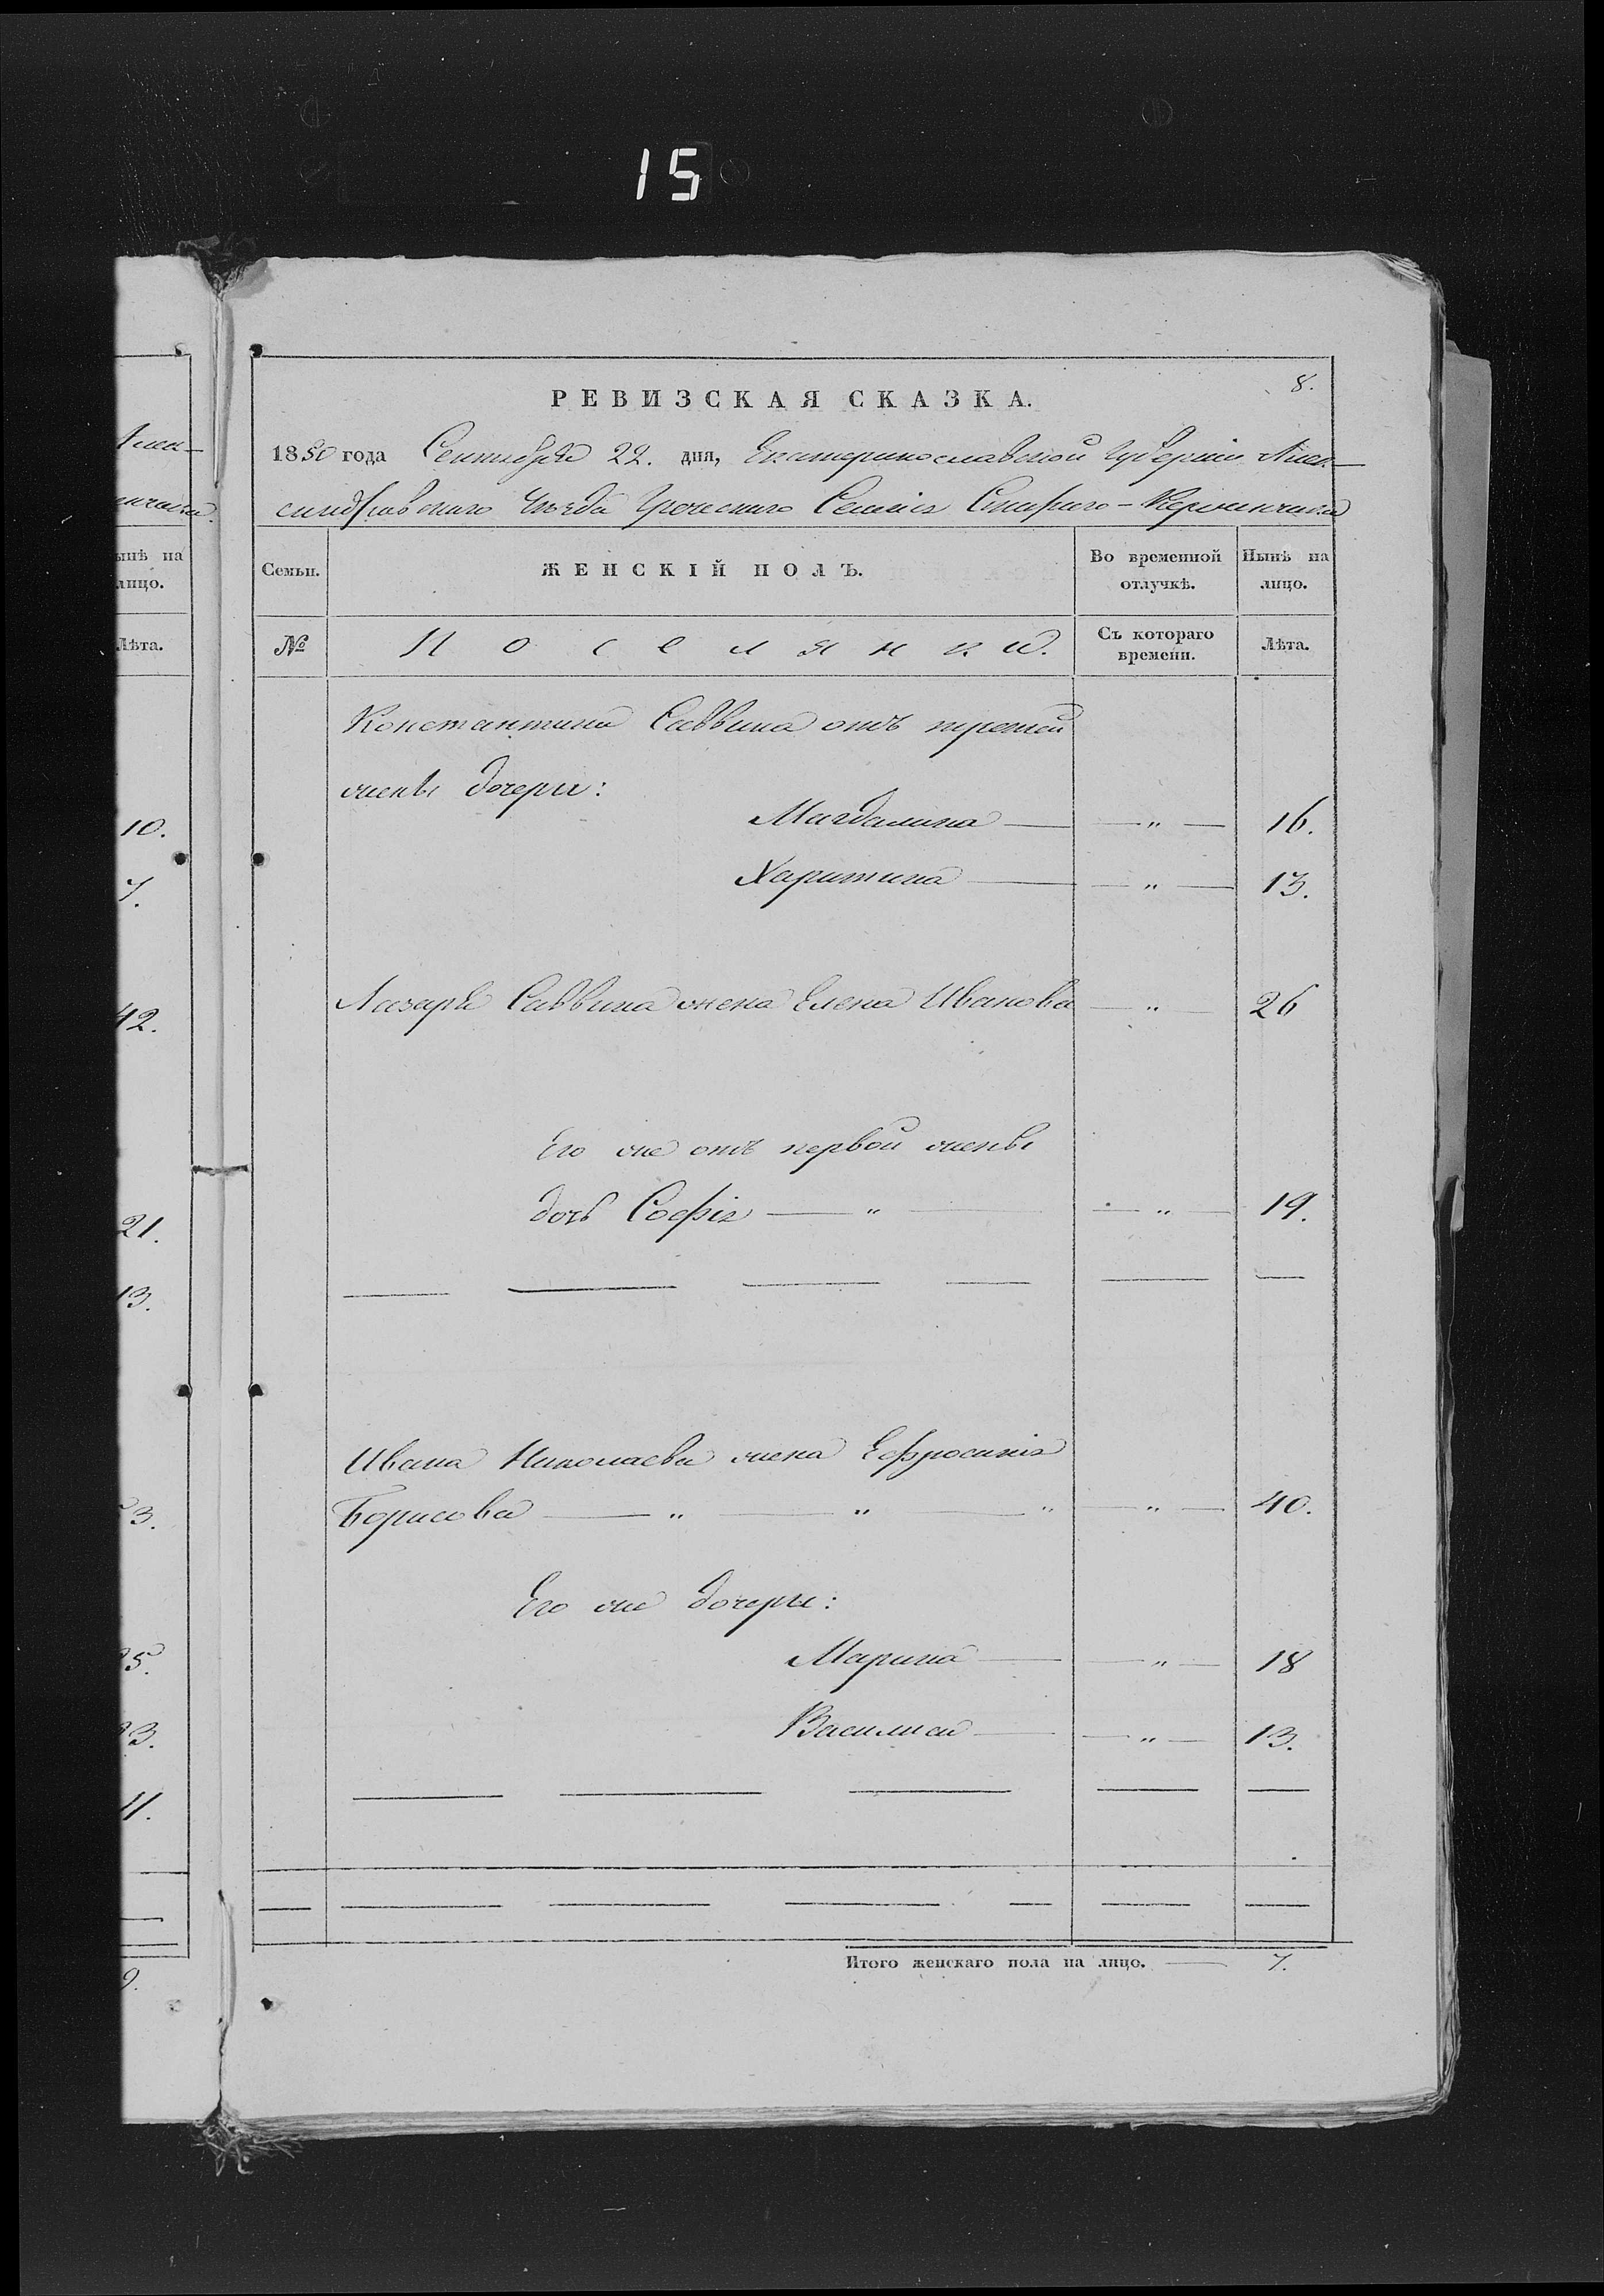 15
8.
РЕВИЗСКАЯ СКАЗКА.
1850 года Сентября 22. дня, Екатеринославской Губерніи Алек-
сандровскаго Уѣзда Греческаго Селенія Стараго-Керменчика
Семьи.
ЖЕНСКІЙ ПОЛЪ.
Во временной отлучкѣ.
Нынѣ на лицо.
№
Поселянки.
Съ котораго времени.
Лѣта.
Константина Саввина отъ третьей
жены дочери:
Магдалина — — „ — 16.
Харитина — — „ — 13.
Лазаря Саввина жена Елена Иванова — „ — 26
Его же отъ первой жены
дочь Софія — „ — — „ — 19.
Ивана Николаева жена Ефросинія
Борисова — „ — „ — „ — „ — 40.
Его же дочери:
Марина — — „ — 18
Василиса — — „ — 13.
Итого женскаго пола на лицо. — 7.
ынѣ на
лицо.
Лѣта.
10.
7.
42.
21.
13.
3.
5.
3.
11.
9.